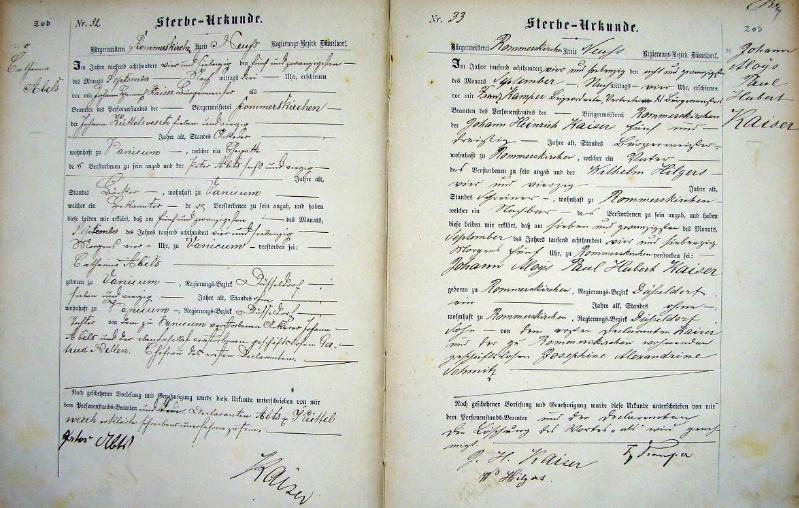 Tod
Nr. 32
Sterbe-Urkunde.
Catharina
Abets
Bürgermeisterei Rommerskirchen Kreis Neuß Regierungs-Bezirk Düsseldorf.
Im Jahre tausend achthundert vier und siebenzig den fünf und zwanzigsten
des Monats September mittags Uhr, erschienen
vor mir Johann Heinrich Kaiser Bürgermeister als
Beamten des Personenstandes der Bürgermeisterei Rommerskirchen
der Johann
Jahre alt, Standes Ackerer
wohnhaft zu Vanicum, welcher ein
de Verstorbenen zu sein angab und der Peter Abets
Jahre alt,
Standes , wohnhaft zu Vanicum
welcher ein Bekannter de Verstorbenen zu sein angab, und haben
diese beiden mir erklärt, daß am fünf und zwanzigsten des Monats
September des Jahres tausend achthundert vier und siebenzig
Morgens vier Uhr, zu Vanicum verstorben sei:
Catharina Abets
geboren zu Vanicum, Regierungs-Bezirk Düsseldorf
sieben und Jahre alt, Standes ohne
wohnhaft zu Vanicum, Regierungs-Bezirk Düsseldorf
Tochter von dem zu Vanicum verstorbenen Ackerer Johann
Abets und der ebendaselbst verstorbenen geschäftslosen Ger-
trud Nellen. Ehefrau des ersten Declaranten
Nach geschehener Vorlesung und Genehmigung wurde diese Urkunde unterschrieben von mir
dem Personenstands-Beamten und dem Declaranten Abets
erklärte schreibens unerfahren zu sein.
Abets
Kaiser
Nr. 33
Sterbe-Urkunde.
Tod
Johann
Aloys
Paul
Hubert
Kaiser
Bürgermeisterei Rommerskirchen Kreis Neuß Regierungs-Bezirk Düsseldorf.
Im Jahre tausend achthundert vier und siebenzig den acht und zwanzigsten
des Monats September mittags vier Uhr, erschienen
vor mir Franz Kamper
Beamten des Personenstandes der Bürgermeisterei Rommerskirchen
der Johann Heinrich Kaiser fünf und
dreißig Jahre alt, Standes Bürgermeister
wohnhaft zu Rommerskirchen, welcher ein Vater
des Verstorbenen zu sein angab und der Wilhelm Hilgers
vier und vierzig Jahre alt,
Standes Schreiner, wohnhaft zu Rommerskirchen
welcher ein Nachbar des Verstorbenen zu sein angab, und haben
diese beiden mir erklärt, daß am sieben und zwanzigsten des Monats
September des Jahres tausend achthundert vier und siebenzig
Morgens fünf Uhr, zu Rommerskirchen verstorben sei:
Johann Aloys Paul Hubert Kaiser
geboren zu Rommerskirchen, Regierungs-Bezirk Düsseldorf
ein Jahre alt, Standes ohne
wohnhaft zu Rommerskirchen, Regierungs-Bezirk Düsseldorf
Sohn von dem ersten Declaranten Kaiser
und der zu Rommerskirchen wohnenden
geschäftslosen Josephine Alexandrine
Schmitz
Nach geschehener Vorlesung und Genehmigung wurde diese Urkunde unterschrieben von mir
dem Personenstands-Beamten und den Declaranten
Die Löschung des Wortes "als" wird geneh-
migt.
J. H. Kaiser
W. Hilgers